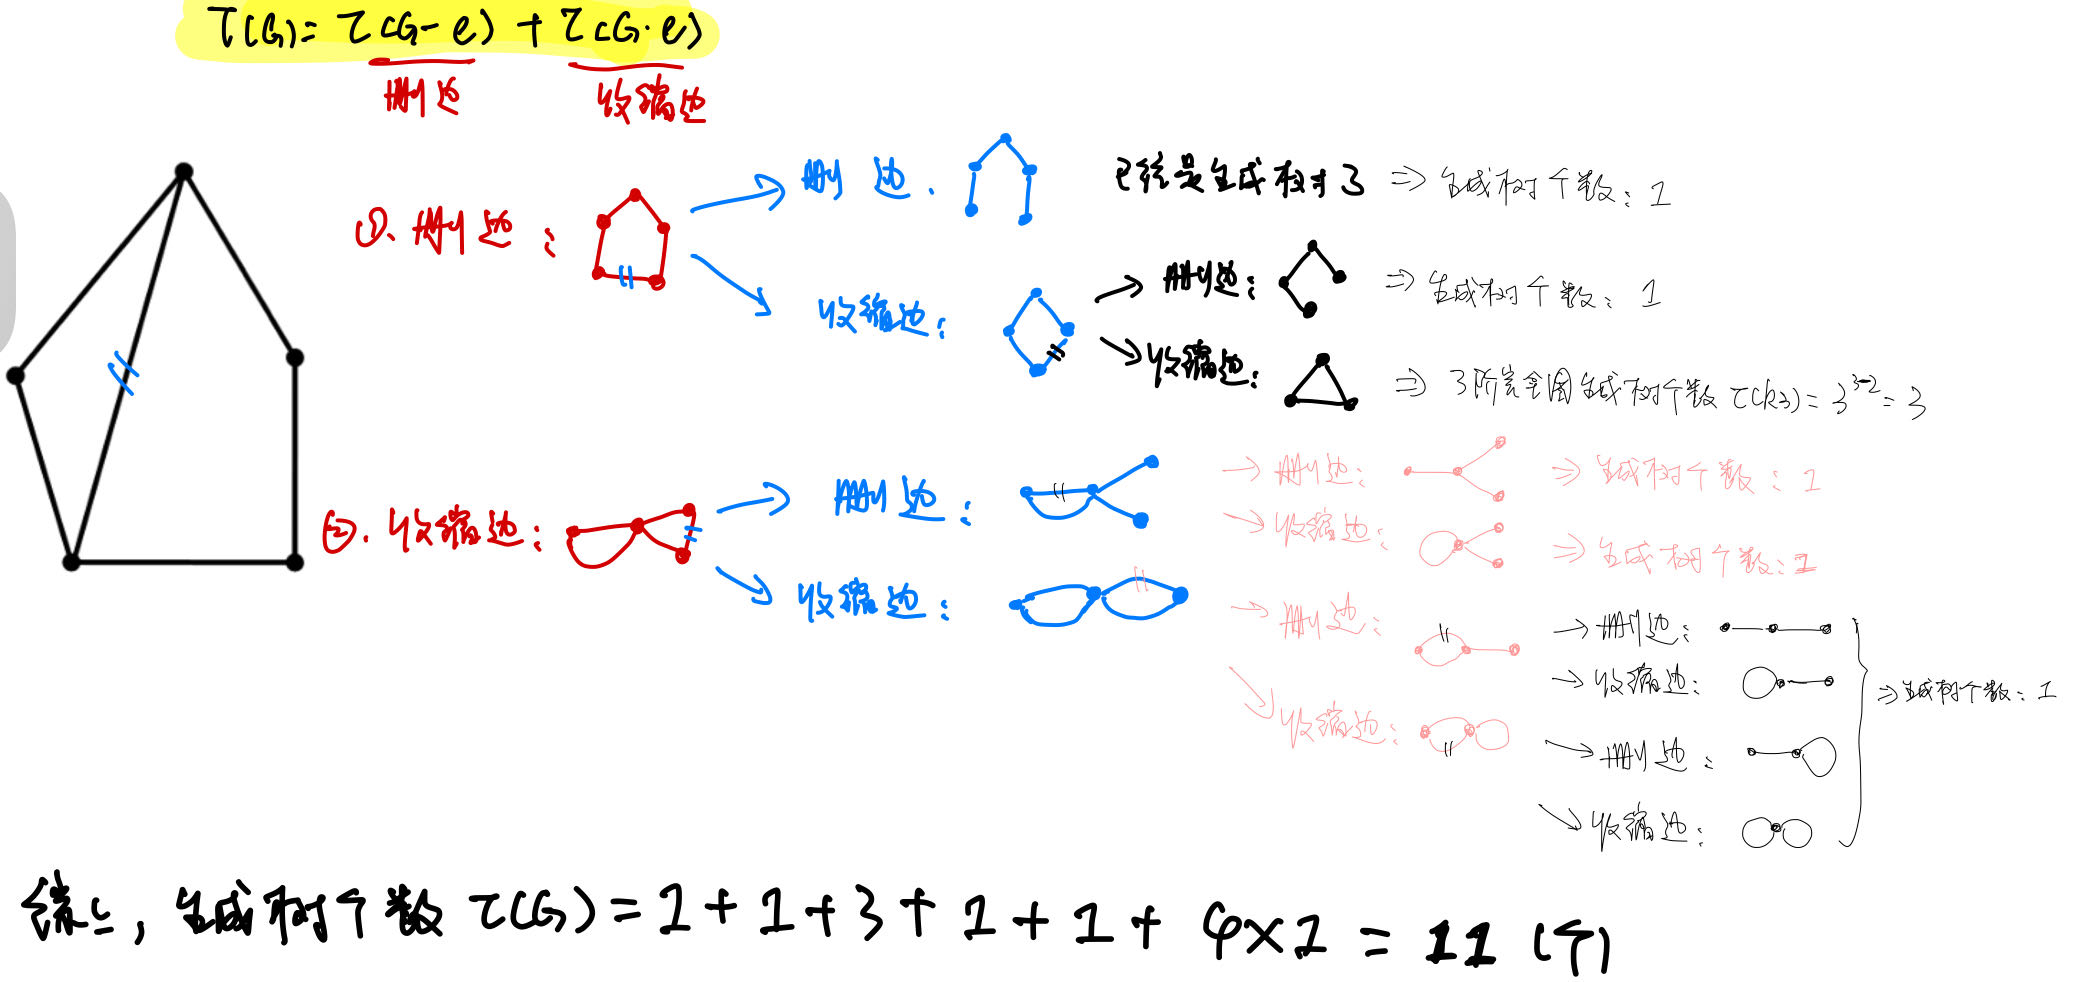 τ(G)= τ(G-e) + τ(G·e)
删边 收缩边
①. 删边： 删边. 已经是生成树了 => 生成树个数：1
收缩边： 删边： => 生成树个数：1
收缩边： => 3阶完全图生成树个数 τ(k3) = 3^{3-2} = 3
②. 收缩边： 删边： → 删边： => 生成树个数：1
→ 收缩边： => 生成树个数：1
收缩边： → 删边： → 删边：
→ 收缩边：
收缩边： 删边：
收缩边：
=> 生成树个数：1
综上, 生成树个数 τ(G) = 1 + 1 + 3 + 1 + 1 + 4×1 = 11 (个)